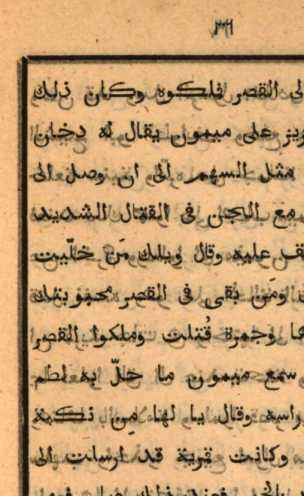 ٣٦١
الى القصر فملكوه وكان ذلك
على ميمون يقال له دخان
مثل السهم الى ان وصل الى
مع الجن فى القتال الشديد
عليه وقال ويلك مَن خلّيت
ومَن بقى فى القصر محبوبتك
وجمرة قُتلت وملكوا القصر
سمع ميمون ما حلّ به لطم
راسه وقال يا لها مِن نكبة
وكانت قرية قد ارسلت الى